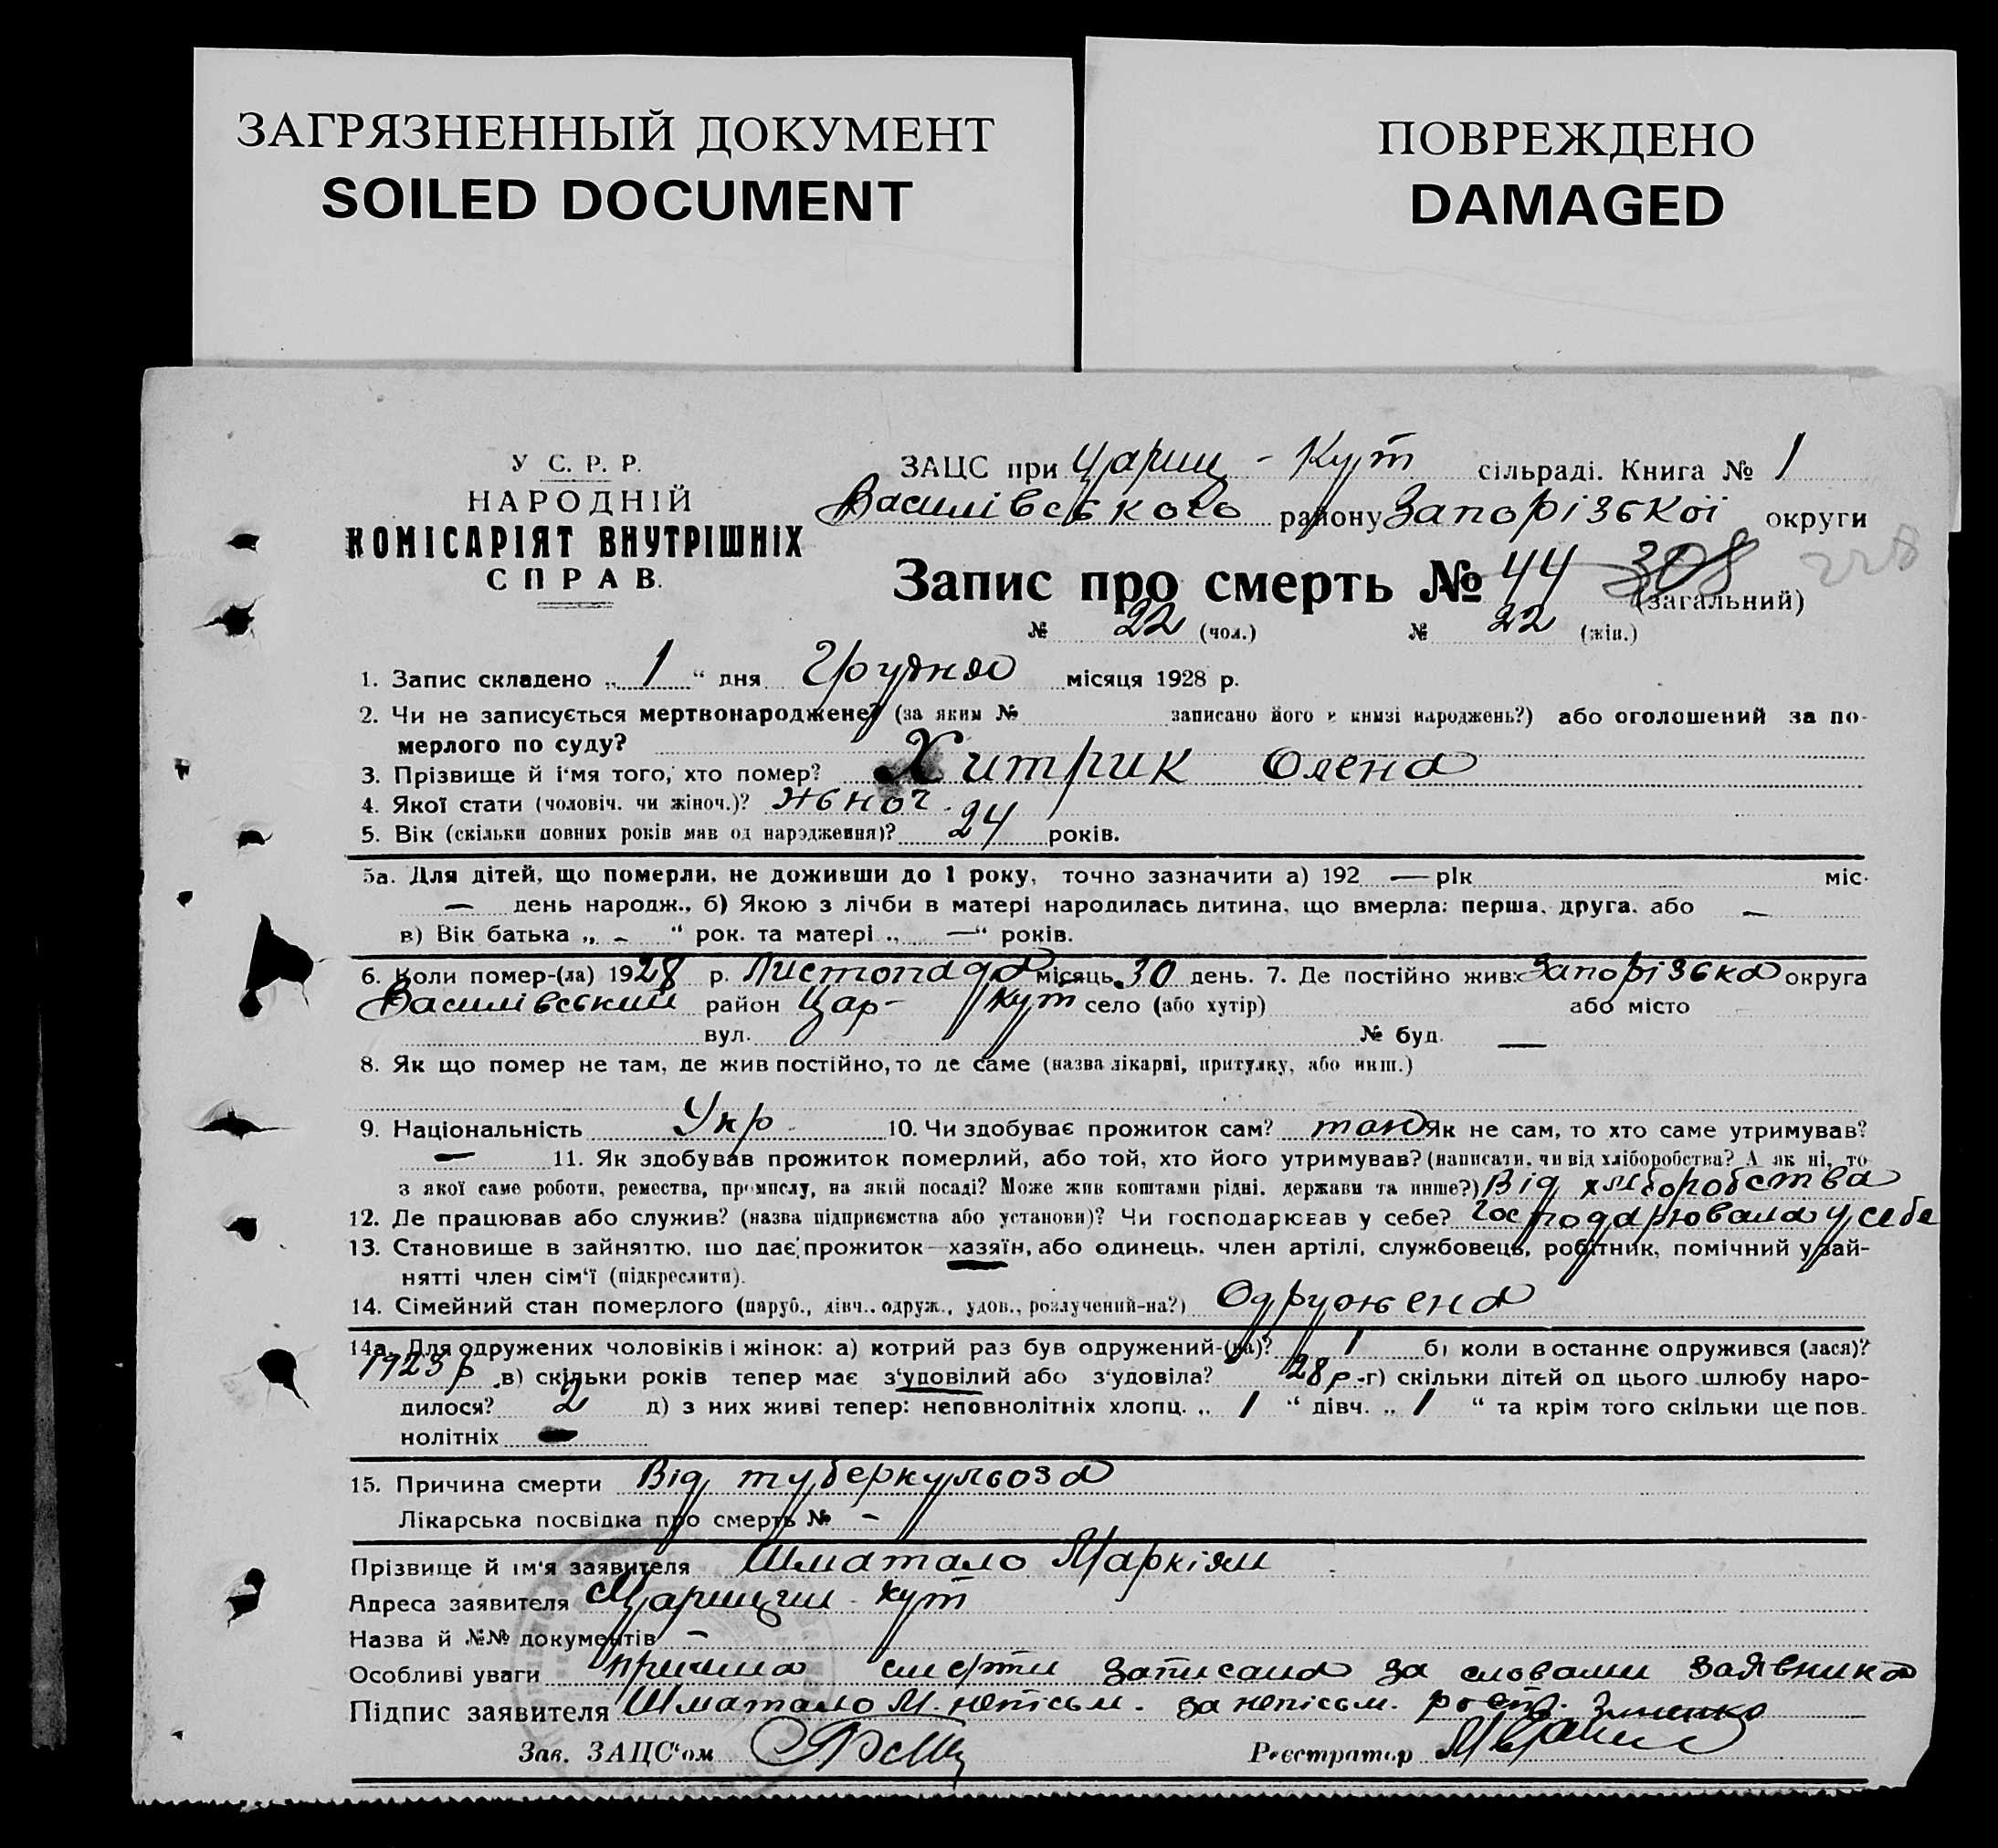 ЗАГРЯЗНЕННЫЙ ДОКУМЕНТ
SOILED DOCUMENT
ПОВРЕЖДЕНО
DAMAGED
У С. Р. Р.
НАРОДНІЙ
КОМІСАРІЯТ ВНУТРІШНІХ
СПРАВ.
ЗАЦС при Цариц - Кут сільраді. Книга № 1
Василівського району Запорізької округи
Запис про смерть № 44 308 228
(загальний)
№ 22 (чол.) № 22 (жін.)
1. Запис складено „ 1 “ дня Грудня місяця 1928 р.
2. Чи не записується мертвонароджене? (за яким № записано його в книзі народжень?) або оголошений за по-
мерлого по суду?
3. Прізвище й і‘мя того, хто помер? Хитрик Олена
4. Якої стати (чоловіч. чи жіноч.)? жьноч.
5. Вік (скільки повних років мав од народження)? 24 років.
5а. Для дітей, що померли, не доживши до 1 року, точно зазначити а) 192 — рік міс.
— день народж., б) Якою з лічби в матері народилась дитина, що вмерла: перша, друга, або —
в) Вік батька „ - “ рок. та матері „ — “ років.
6. Коли помер-(ла) 1928 р. Листопада місяць 30 день. 7. Де постійно жив: Запорізька округа
Василівський район Цар- Кут село (або хутір) або місто
вул. № буд. —
8. Як що помер не там, де жив постійно, то де саме (назва лікарні, притулку, або инш.)
9. Національність Укр. 10. Чи здобуває прожиток сам? так Як не сам, то хто саме утримував?
— 11. Як здобував прожиток померлий, або той, хто його утримував? (написати, чи від хліборобства? А як ні, то
з якої саме роботи, ремества, промислу, на якій посаді? Може жив коштами рідні, держави та инше?) Від хліборобства
12. Де працював або служив? (назва підприємства або установи)? Чи господарював у себе? Господарювала у себе
13. Становище в зайняттю, що дає прожиток—хазяїн, або одинець, член артілі, службовець, робітник, помічний у зай-
нятті член сім‘ї (підкреслити).
14. Сімейний стан померлого (паруб., дівч., одруж., удов., розлучений-на?) Одружена
14а. Для одружених чоловіків і жінок: а) котрий раз був одружений-(на)? 1 б) коли в останнє одружився (лася)?
1923 р. в) скільки років тепер має з‘удовілий або з‘удовіла? 28 р. г) скільки дітей од цього шлюбу наро-
дилося? 2 д) з них живі тепер: неповнолітніх хлопц. „ 1 “ дівч. „ 1 “ та крім того скільки ще пов.
нолітніх —
15. Причина смерти Від туберкульоза
Лікарська посвідка про смерть № -
Прізвище й ім‘я заявителя Шматало Маркіян
Адреса заявителя Царицин кут
Назва й №№ документів -
Особливі уваги причина смерти записана за словами заявника
Підпис заявителя Шматало М. непісьм. за непісьм. росп.
Зав. ЗАЦС‘ом
Реєстратор